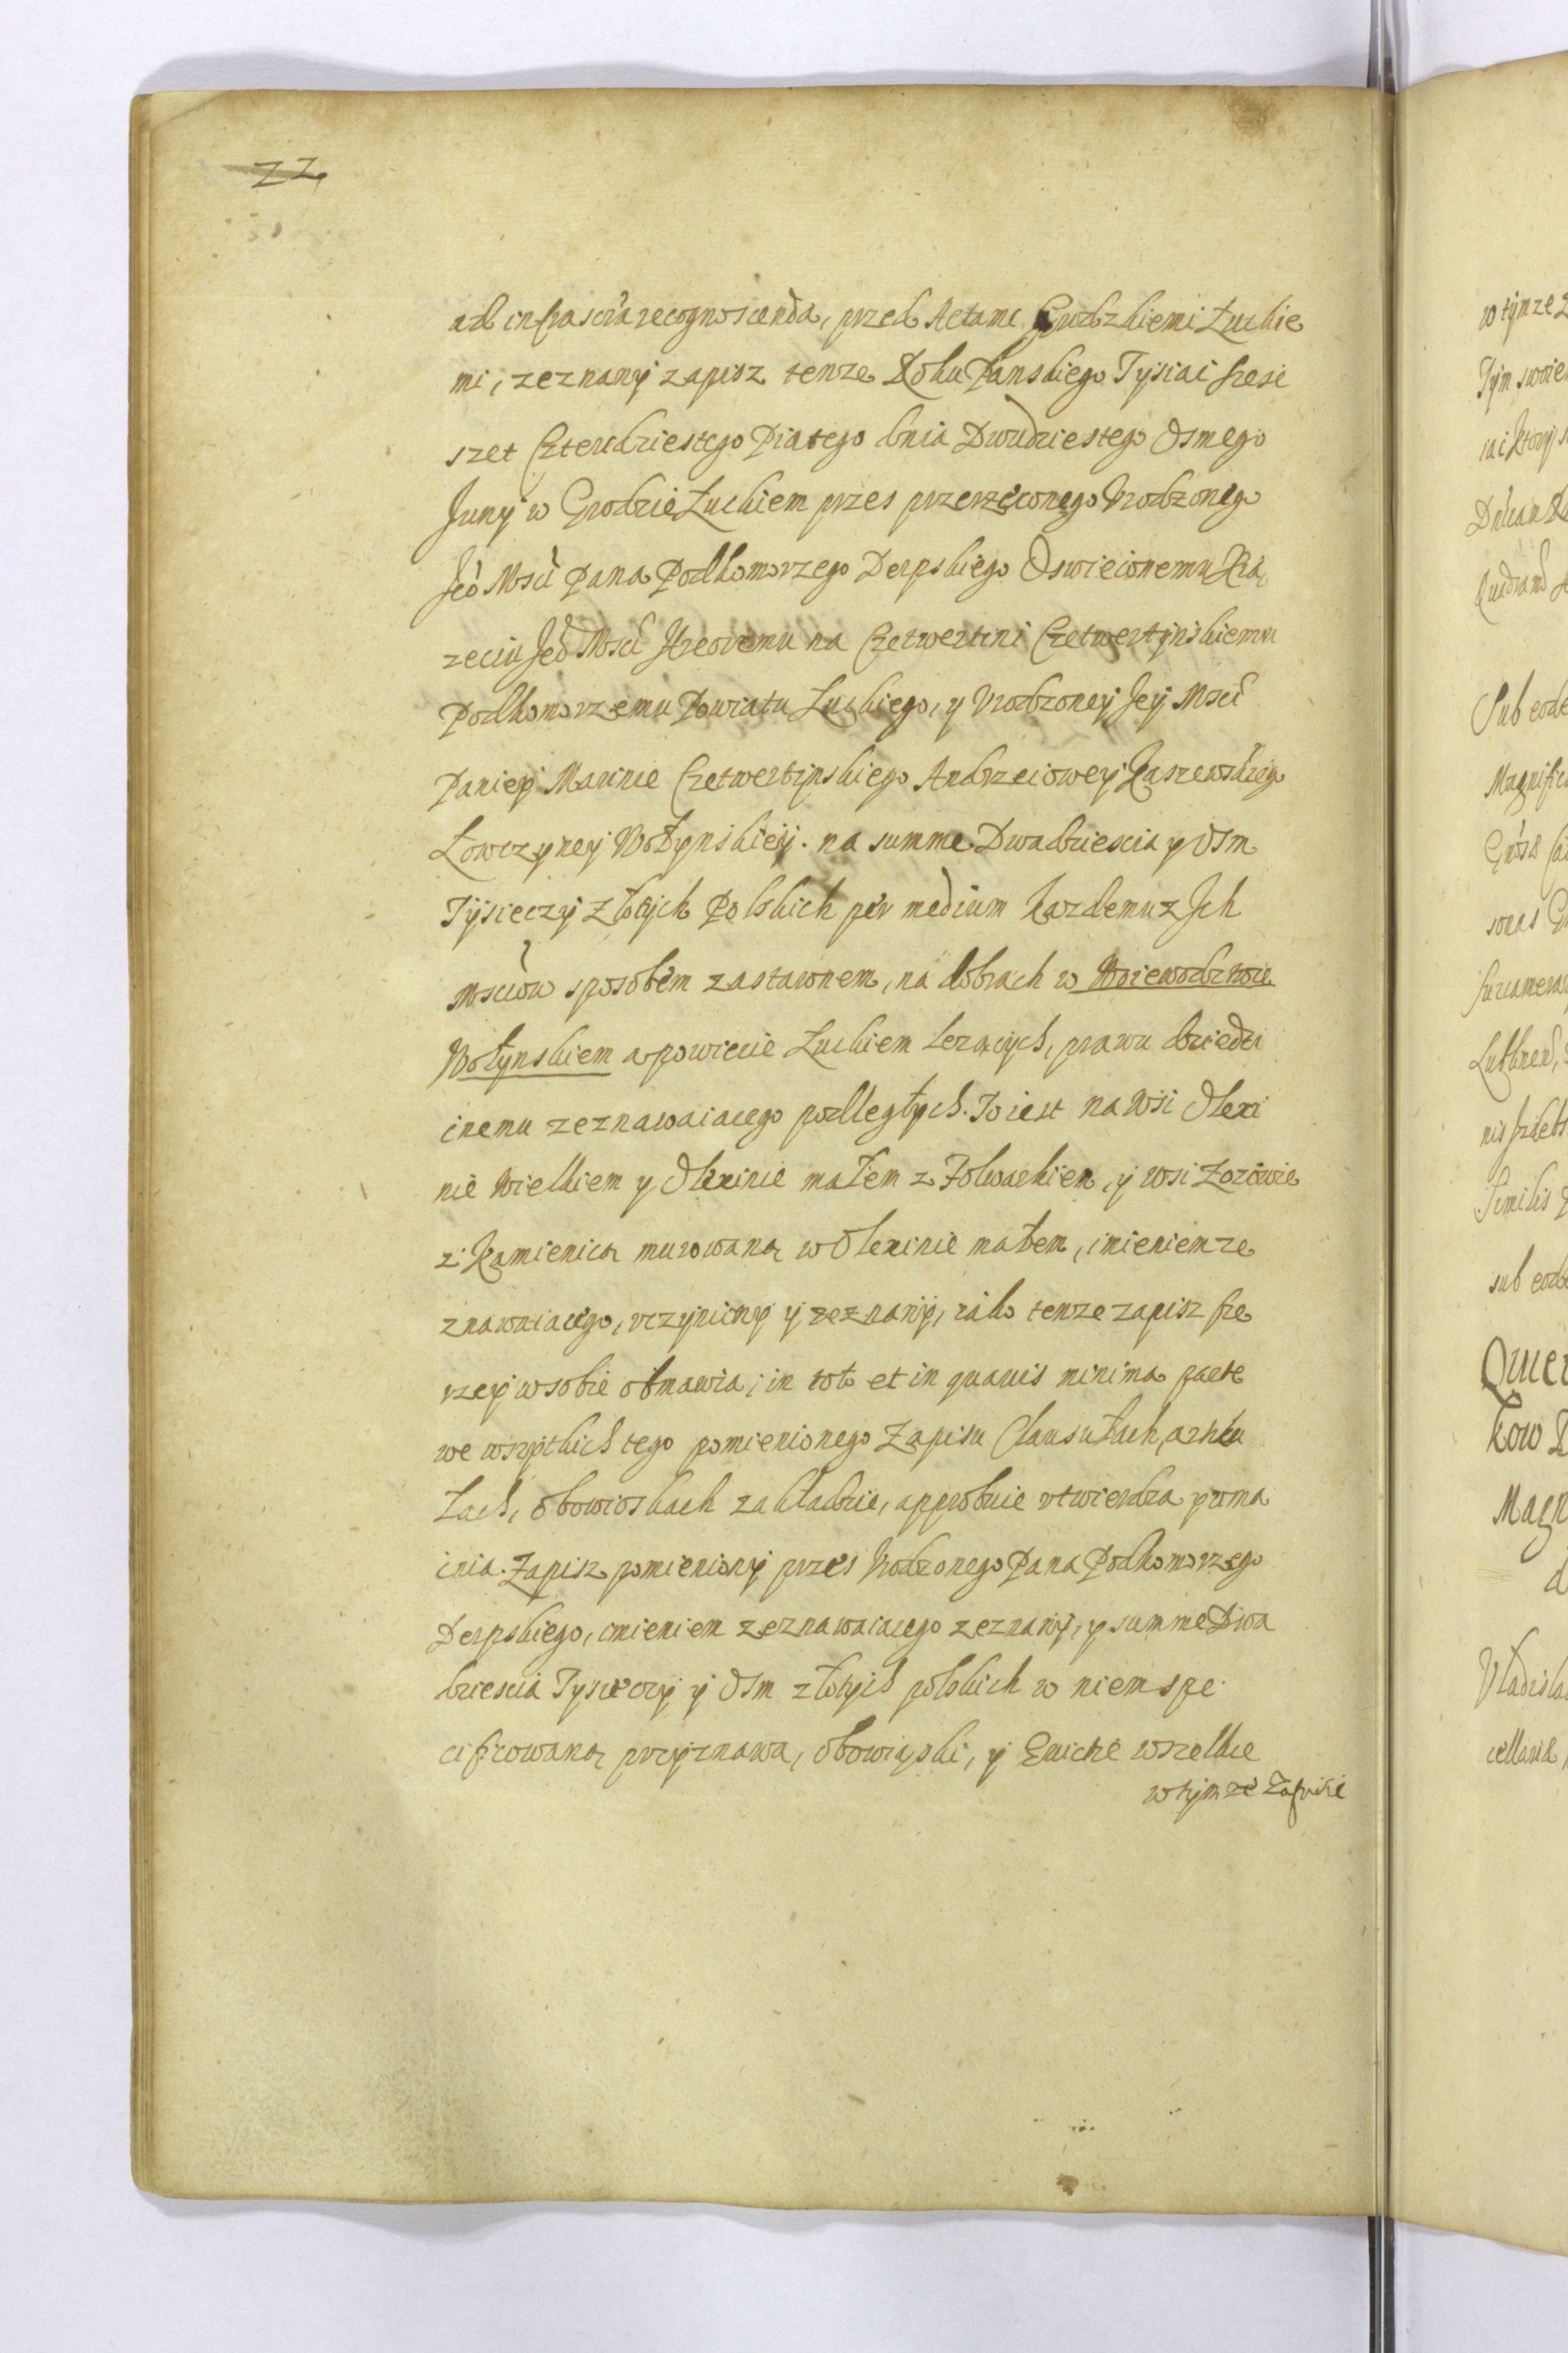 22
ad infrascra recognoscenda, przed Actami Grodzkiemi Łuckie
mi, zeznany zapisz tenze Roku Panskiego Tysiac szesc
szet Czterdziestego Piatego dnia Dwudziestego Osmego
Juny w Grodzie Łuckiem przes przerzeconego Vrodzonego
Jeo Mosci Pana Podkomorzego Derpskiego Oswieconemu Xia,
zeciu Jeo Mosci Jlreovemu na Czetwertni Czetwertynskiemu
Podkomorzemu Powiatu Luckiego, y Vrodzoney Jey Mosci
Paniey Marinie Czetwertynskiego Andrzeiowey Zaszewskiego
Łowczyney Wołynskiey. na summe Dwadziescia y Osm
Tysieczy złotych Polskich per medium Kazdemu z Jch
Mosciow sposobem zastawnem, na dobrach w Woiewodztwie
Wołynskiem a powiecie Łuckiem lezacych, prawu dziedzi
cnemu zeznawaiacego podległych. To iest na Wsi Olexi
nie Wielkiem y Olexinie małem z Folwarkiem, y Wsi Zozowie
z Kamienica murowana w Olexinie małem, imieniem ze
znawaiacego, vczyniony y zeznany, iako tenze zapisz sze
rzey w sobie obmawia, in toto et in quauis minima parte
we wszytkich tego pomienionego Zapisu Clausułach, artyku
łach, obowioskach zakładzie, approbuie vtwierdza zma
cnia. Zapisz pomieniony przes Vrodzonego Pana Podkomorzego
Derpskiego, imieniem zeznawaiacego zeznany, y summe Dwa
dziescia Tysieczy y Osm złotych polskich w niem spe
cificowana przyznawa, obowiąski, y Euictie wszelkie
w tym ze Zapisie
w tymze
Tym swoie
Sub eode
Magnific
sonas
Similis
sub eode
Magn
Vladisla